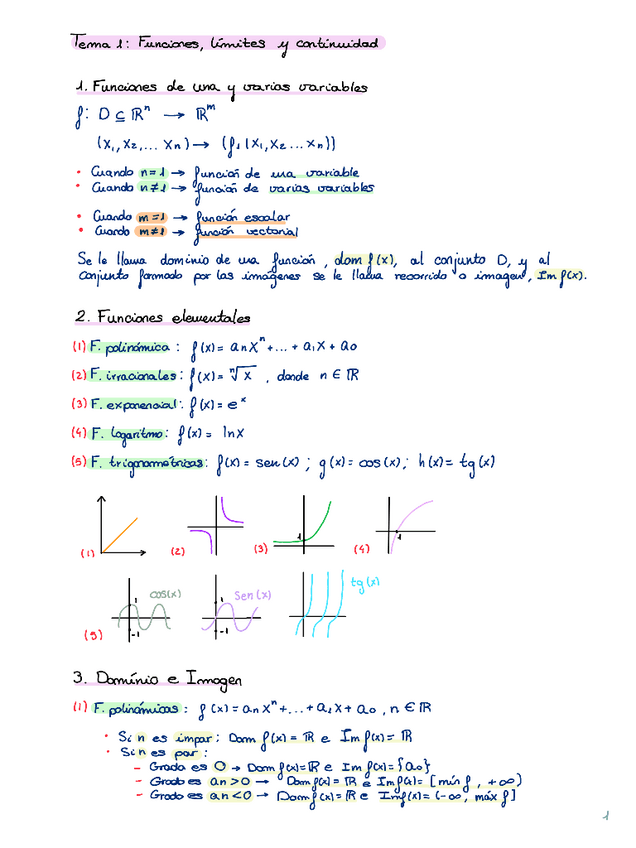 Tema 1: Funciones, límites y continuidad
1. Funciones de una y varias variables
f: D ⊆ ℝⁿ → ℝᵐ
(x₁, x₂, ... xₙ) → (f₁(x₁, x₂ ... xₙ))
• Cuando n=1 → función de una variable
• Cuando n≠1 → función de varias variables
• Cuando m=1 → función escalar
• Cuando m≠1 → función vectorial
Se le llama dominio de una función, dom f(x), al conjunto D, y al
conjunto formado por las imágenes se le llama recorrido o imagen, Im f(x).
2. Funciones elementales
(1) F. polinómica: f(x) = aₙxⁿ + ... + a₁x + a₀
(2) F. irracionales: f(x) = ⁿ√x, donde n ∈ ℝ
(3) F. exponencial: f(x) = eˣ
(4) F. logaritmo: f(x) = ln x
(5) F. trigonométricas: f(x) = sen(x); g(x) = cos(x); h(x) = tg(x)
(1) (2) (3) 1 (4) 1
(5) cos(x) 1 -1 sen(x) 1 -1 tg(x)
3. Domínio e Imagen
(1) F. polinómicas: f(x) = aₙxⁿ + ... + a₁x + a₀, n ∈ ℝ
• Si n es impar: Dom f(x) = ℝ e Im f(x) = ℝ
• Si n es par:
– Grado es 0 → Dom f(x) = ℝ e Im f(x) = {a₀}
– Grado es aₙ>0 → Dom f(x) = ℝ e Im f(x) = [mín f, +∞)
– Grado es aₙ<0 → Dom f(x) = ℝ e Im f(x) = (-∞, máx f]
1